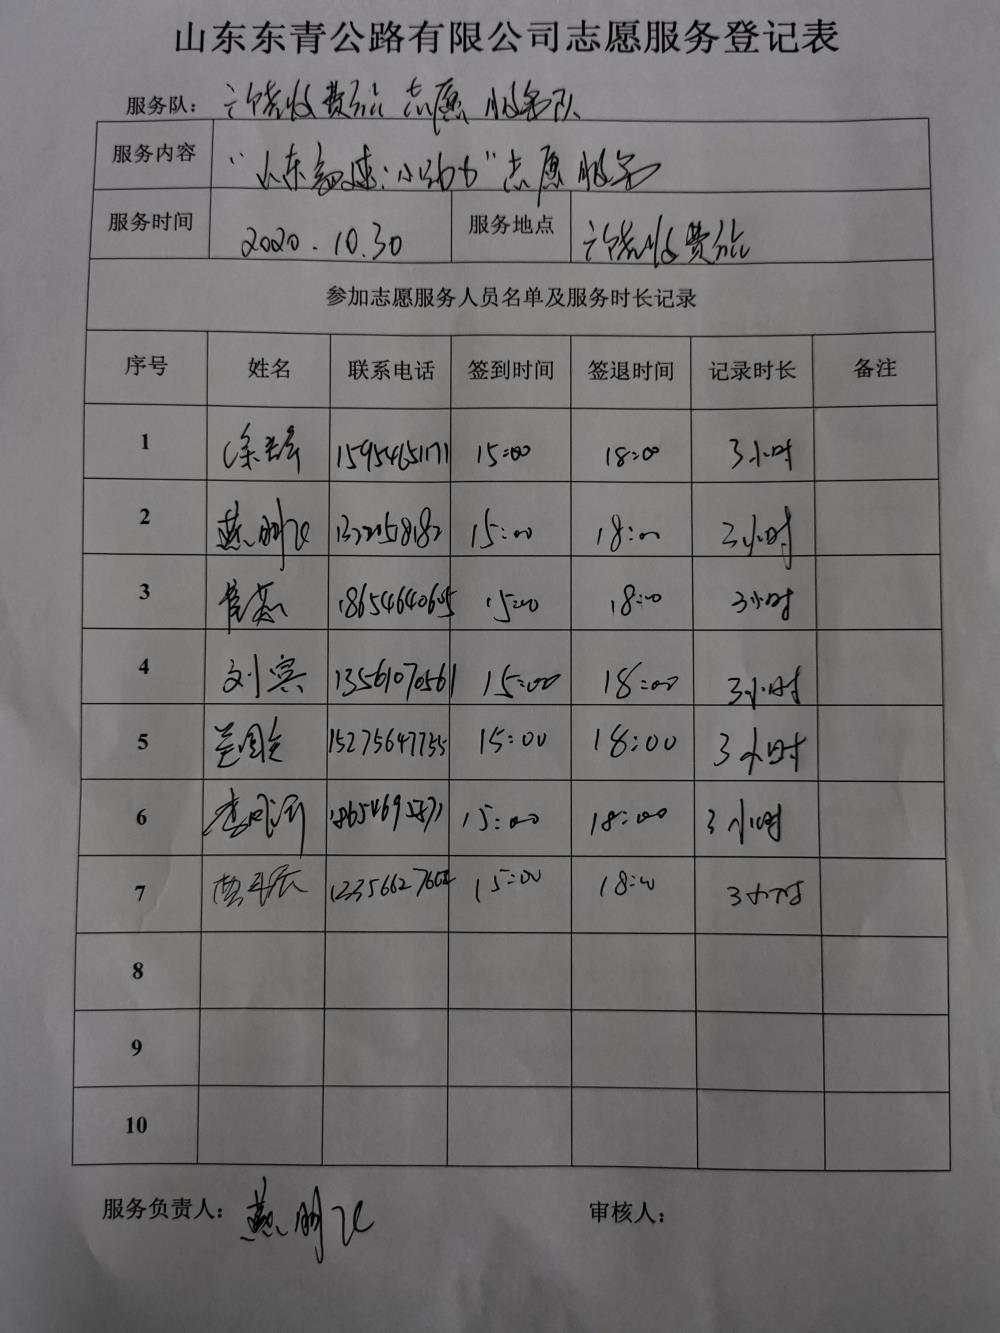 山东东青公路有限公司志愿服务登记表
服务队： 收费站 志愿 服务队
服务内容 “山东高速：小” 志愿 服务
服务时间 2020.10.30 服务地点 收费站
参加志愿服务人员名单及服务时长记录
序号 姓名 联系电话 签到时间 签退时间 记录时长 备注
1 15954651171 15:00 18:00 3小时
2 燕明 15:00 18:00 3小时
3 18654640605 15:00 18:00 3小时
4 刘宾 13561070561 15:00 18:00 3小时
5 15275647755 15:00 18:00 3小时
6 18654695871 15:00 18:00 3小时
7 15:00 18:00 3小时
8
9
10
服务负责人： 燕明 审核人：